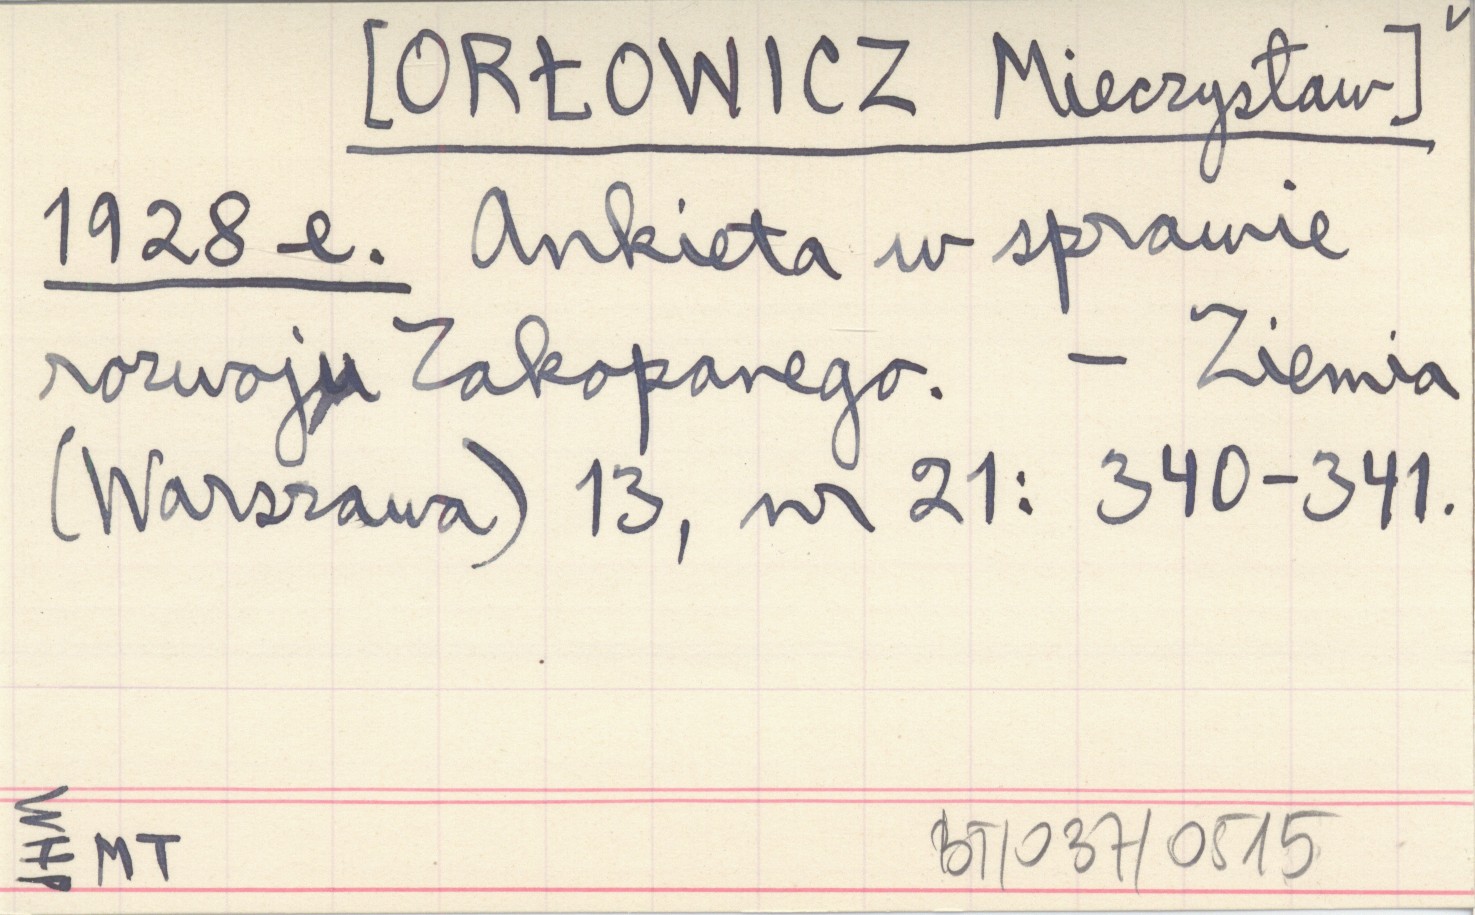 [ORŁOWICZ Mieczysław]
1928 e. Ankieta w sprawie
rozwoju Zakopanego. – Ziemia
(Warszawa) 13, nr 21: 340-341.
WHP
MT
BT/037/0515